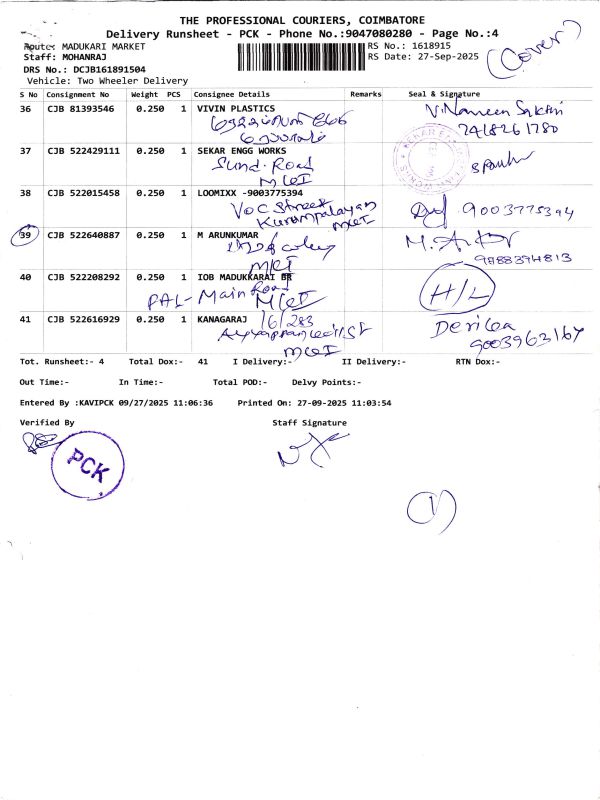 THE PROFESSIONAL COURIERS, COIMBATORE
Delivery Runsheet - PCK - Phone No.:9047080280 - Page No.:4
(Cover)
Route: MADUKARI MARKET
RS No.: 1618915
Staff: MOHANRAJ
RS Date: 27-Sep-2025
DRS No.: DCJB161891504
Vehicle: Two Wheeler Delivery
S No Consignment No Weight PCS Consignee Details Remarks Seal & Signature
36 CJB 81393546 0.250 1 VIVIN PLASTICS V.Naveen Sakthi
7418261780
37 CJB 522429111 0.250 1 SEKAR ENGG WORKS
Sund. Road
MKI
38 CJB 522015458 0.250 1 LOOMIXX -9003775394
VOC Street 9003775394
Kurumpalayam
MKI
39 CJB 522640887 0.250 1 M ARUNKUMAR
9788394813
MKI
40 CJB 522208292 0.250 1 IOB MADUKKARAI BR
PAL- Main Road H/L
MKI
41 CJB 522616929 0.250 1 KANAGARAJ 16/283
9003963167
MKI
Tot. Runsheet:- 4 Total Dox:- 41 I Delivery:- II Delivery:- RTN Dox:-
Out Time:- In Time:- Total POD:- Delvy Points:-
Entered By :KAVIPCK 09/27/2025 11:06:36 Printed On: 27-09-2025 11:03:54
Verified By Staff Signature
PCK
1